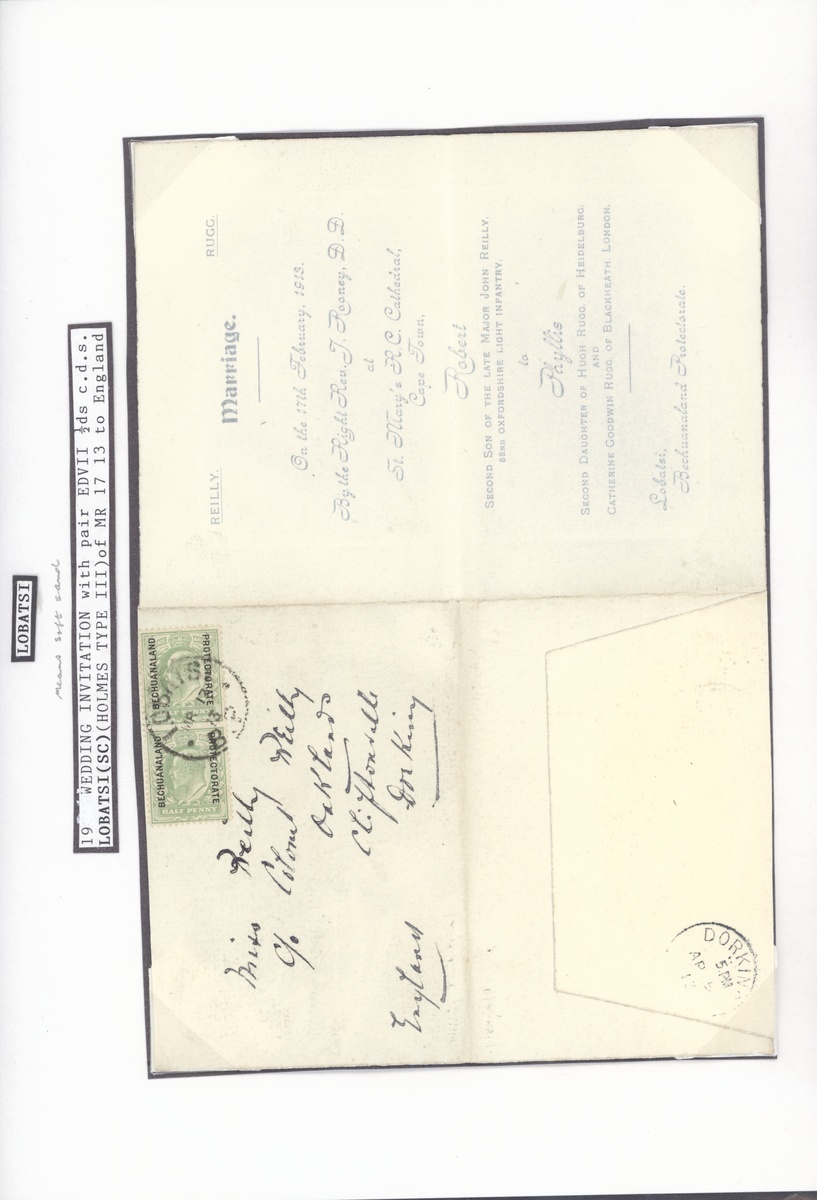 LOBATSI
means soft sand
19 WEDDING INVITATION with pair EDVII ½ds c.d.s.
LOBATSI(SC)(HOLMES TYPE III)of MR 17 13 to England
REILLY. RUGG.
Marriage.
On the 17th February, 1913.
By the Right Rev. J. Rooney, D.D.
at
St. Mary's R.C. Cathedral,
Cape Town,
Robert
SECOND SON OF THE LATE MAJOR JOHN REILLY.
52ND OXFORDSHIRE LIGHT INFANTRY.
to
Phyllis
SECOND DAUGHTER OF HUGH RUGG, OF HEIDELBURG.
AND
CATHERINE GOODWIN RUGG, OF BLACKHEATH LONDON.
Lobatsi,
Bechuanaland Protectorate.
BECHUANALAND BECHUANALAND
PROTECTORATE PROTECTORATE
HALF PENNY
Miss Reilly
c/o Colonel Reilly
Oaklands
Cliftonville
Dorking
England
DORKING
5 PM
AP